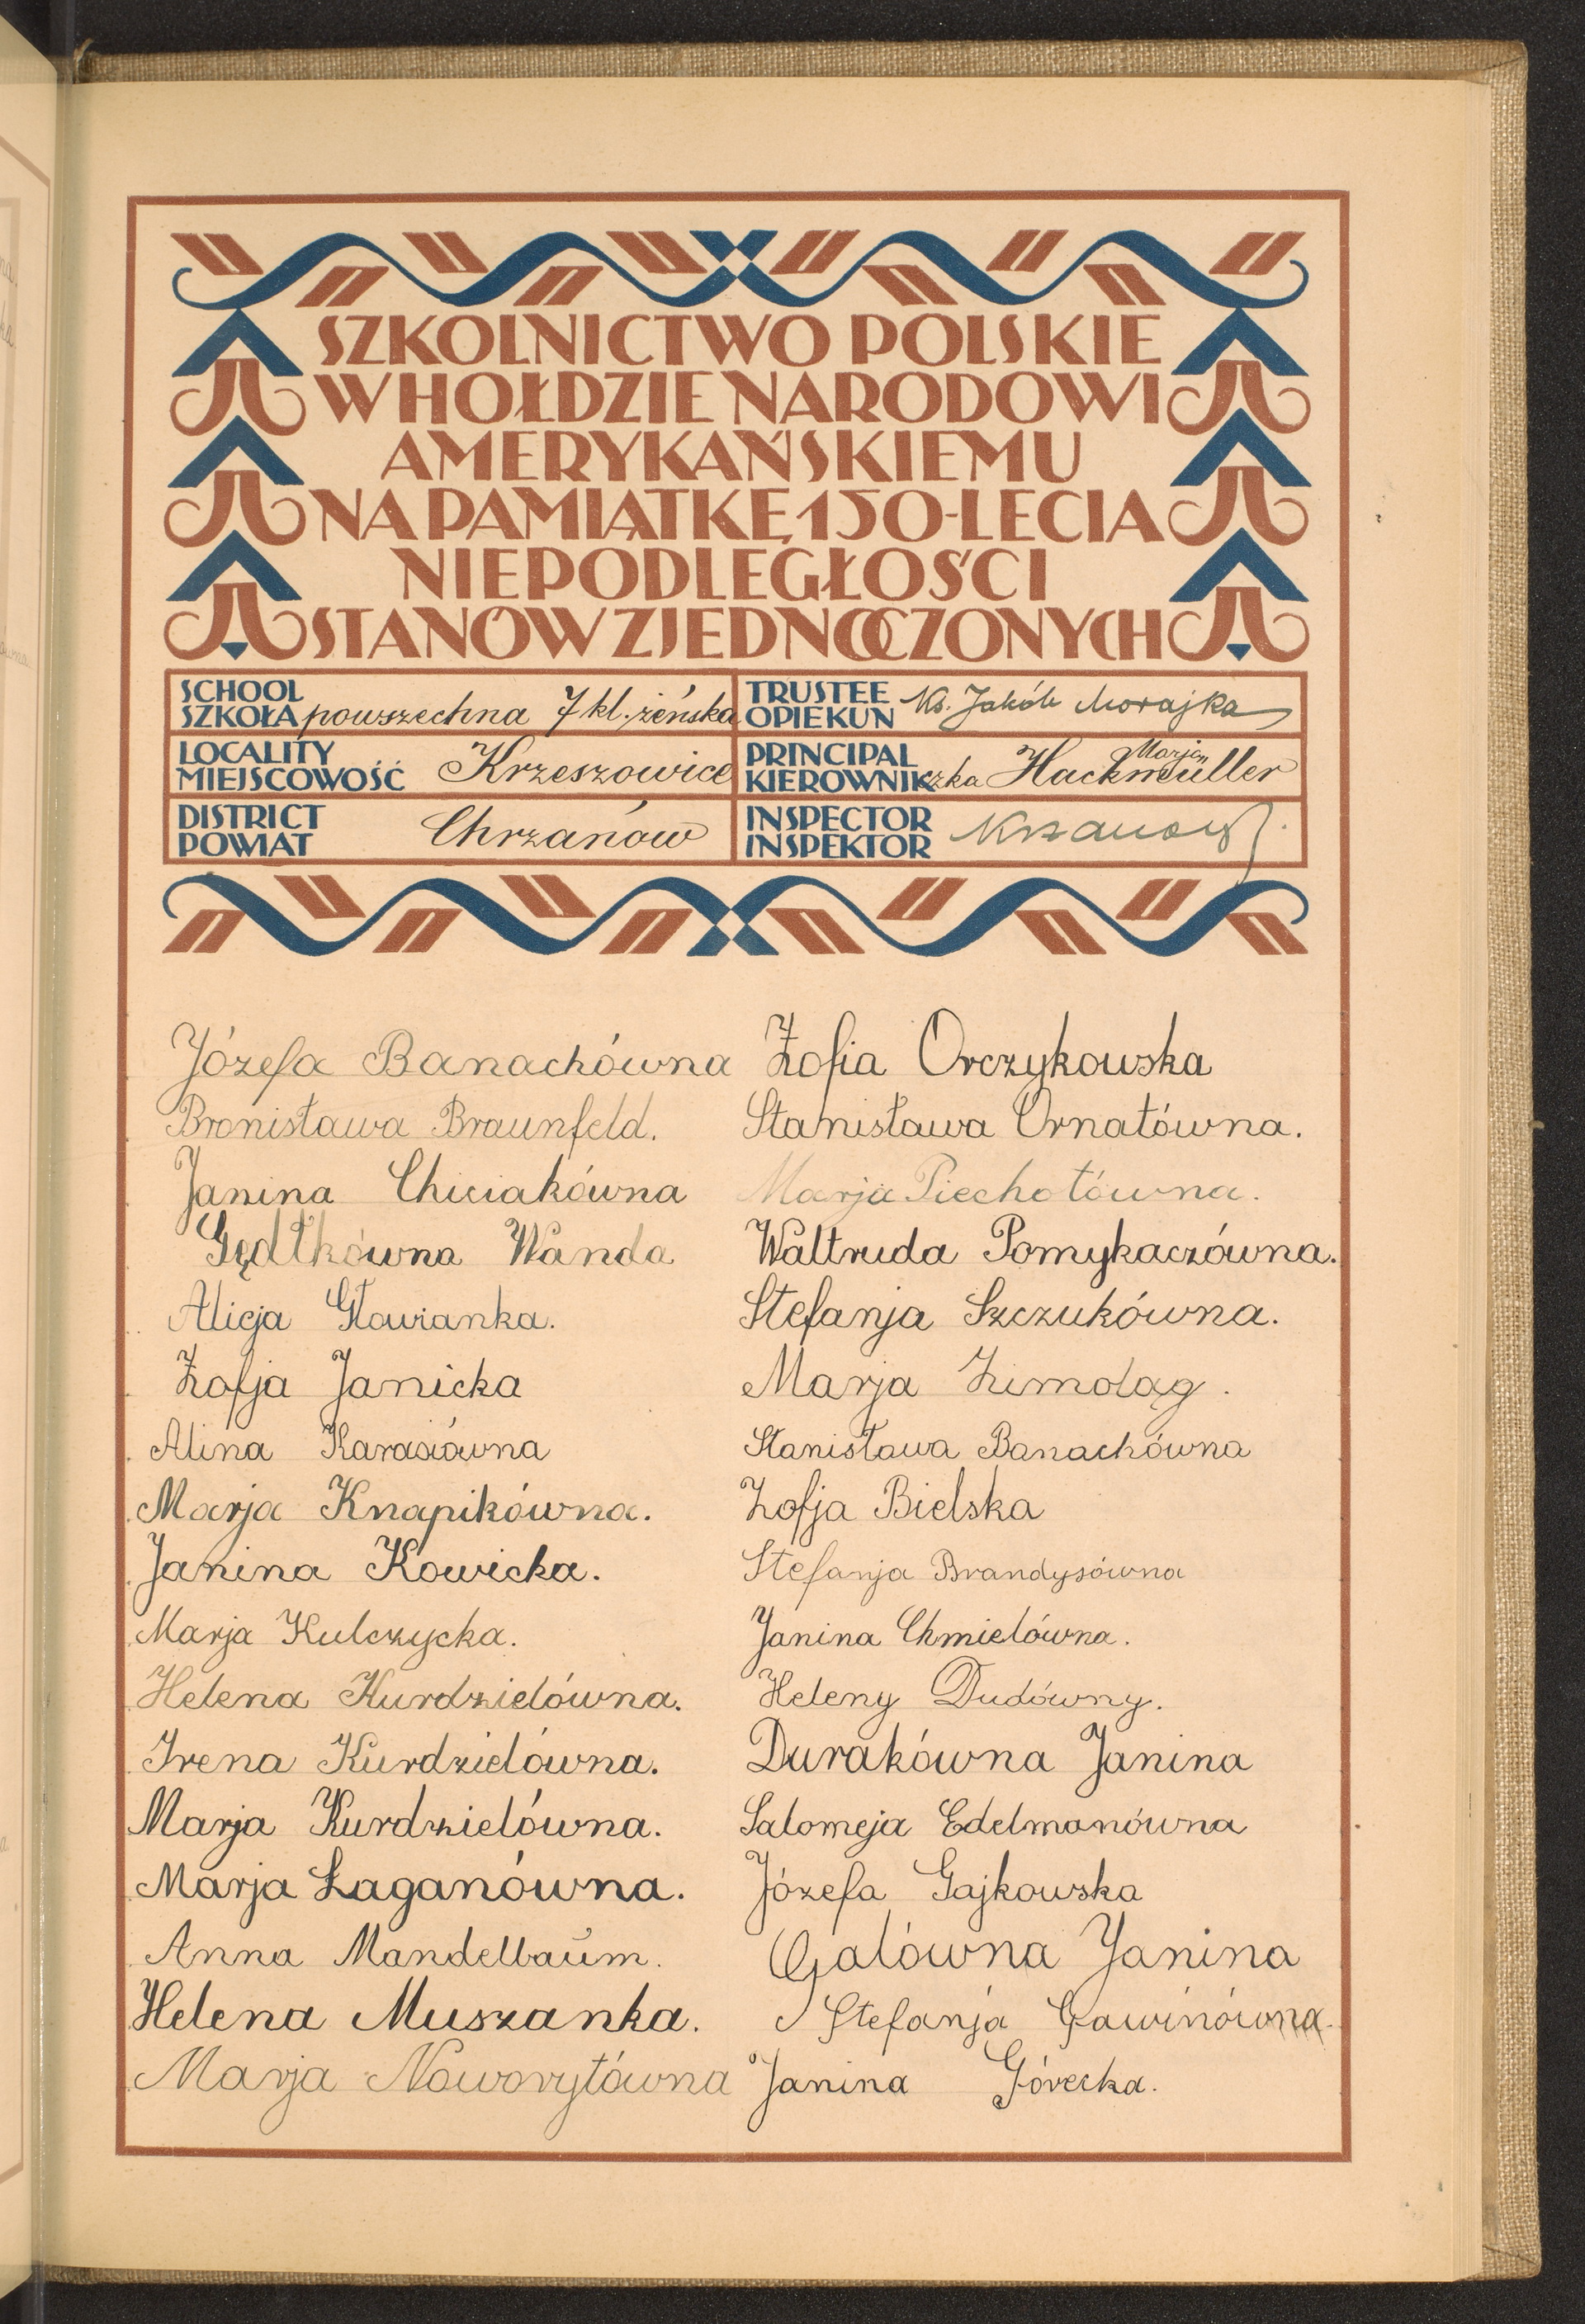 SZKOLNICTWO POLSKIE
W HOŁDZIE NARODOWI
AMERYKAŃSKIEMU
NA PAMIĄTKĘ 150-LECIA
NIEPODLEGŁOŚCI
STANÓW ZJEDNOCZONYCH
SCHOOL
SZKOŁA powszechna 7 kl. żeńska
TRUSTEE
OPIEKUN Ks. Jakób Morajka
LOCALITY
MIEJSCOWOŚĆ Krzeszowice
PRINCIPAL
KIEROWNIKczka Marja Hackmüller
DISTRICT
POWIAT Chrzanów
INSPECTOR
INSPEKTOR
Józefa Banachówna
Bronisława Braunfeld.
Janina Chiciakówna
Gędłkówna Wanda
Alicja Głowianka.
Zofja Janicka
Alina Karasiówna
Marja Knapikówna.
Janina Kowicka.
Marja Kulczycka.
Helena Kurdzielówna.
Irena Kurdzielówna.
Marja Kurdzielówna.
Marja Łaganówna.
Anna Mandelbaum.
Helena Muszanka.
Marja Noworytówna
Zofia Orczykowska
Stanisława Ornatówna.
Marja Piechotówna.
Waltruda Pomykaczówna.
Stefanja Szczukówna.
Marja Zimoląg.
Stanisława Banachówna
Zofja Bielska
Stefanja Brandysówna
Janina Chmielówna.
Heleny Dudówny.
Durakówna Janina
Salomeja Edelmanówna
Józefa Gajkowska
Galówna Janina
Stefanja Gawinówna.
Janina Górecka.